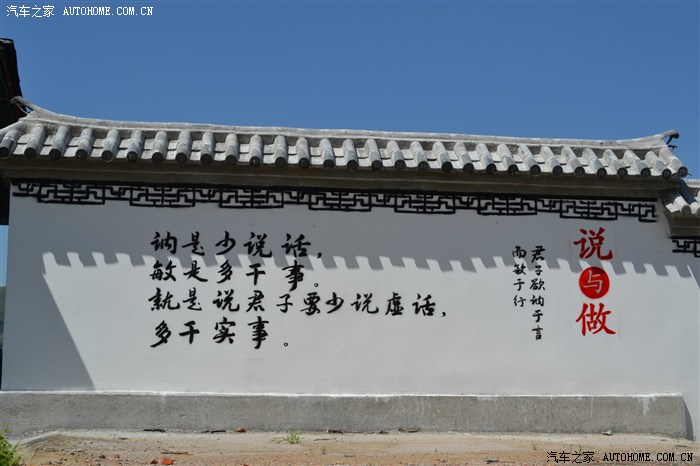 汽车之家 AUTOHOME.COM.CN
说与做
君子欲讷于言
而敏于行
讷是少说话，
敏是多干事。
就是说君子要少说虚话，
多干实事。
汽车之家 AUTOHOME.COM.CN